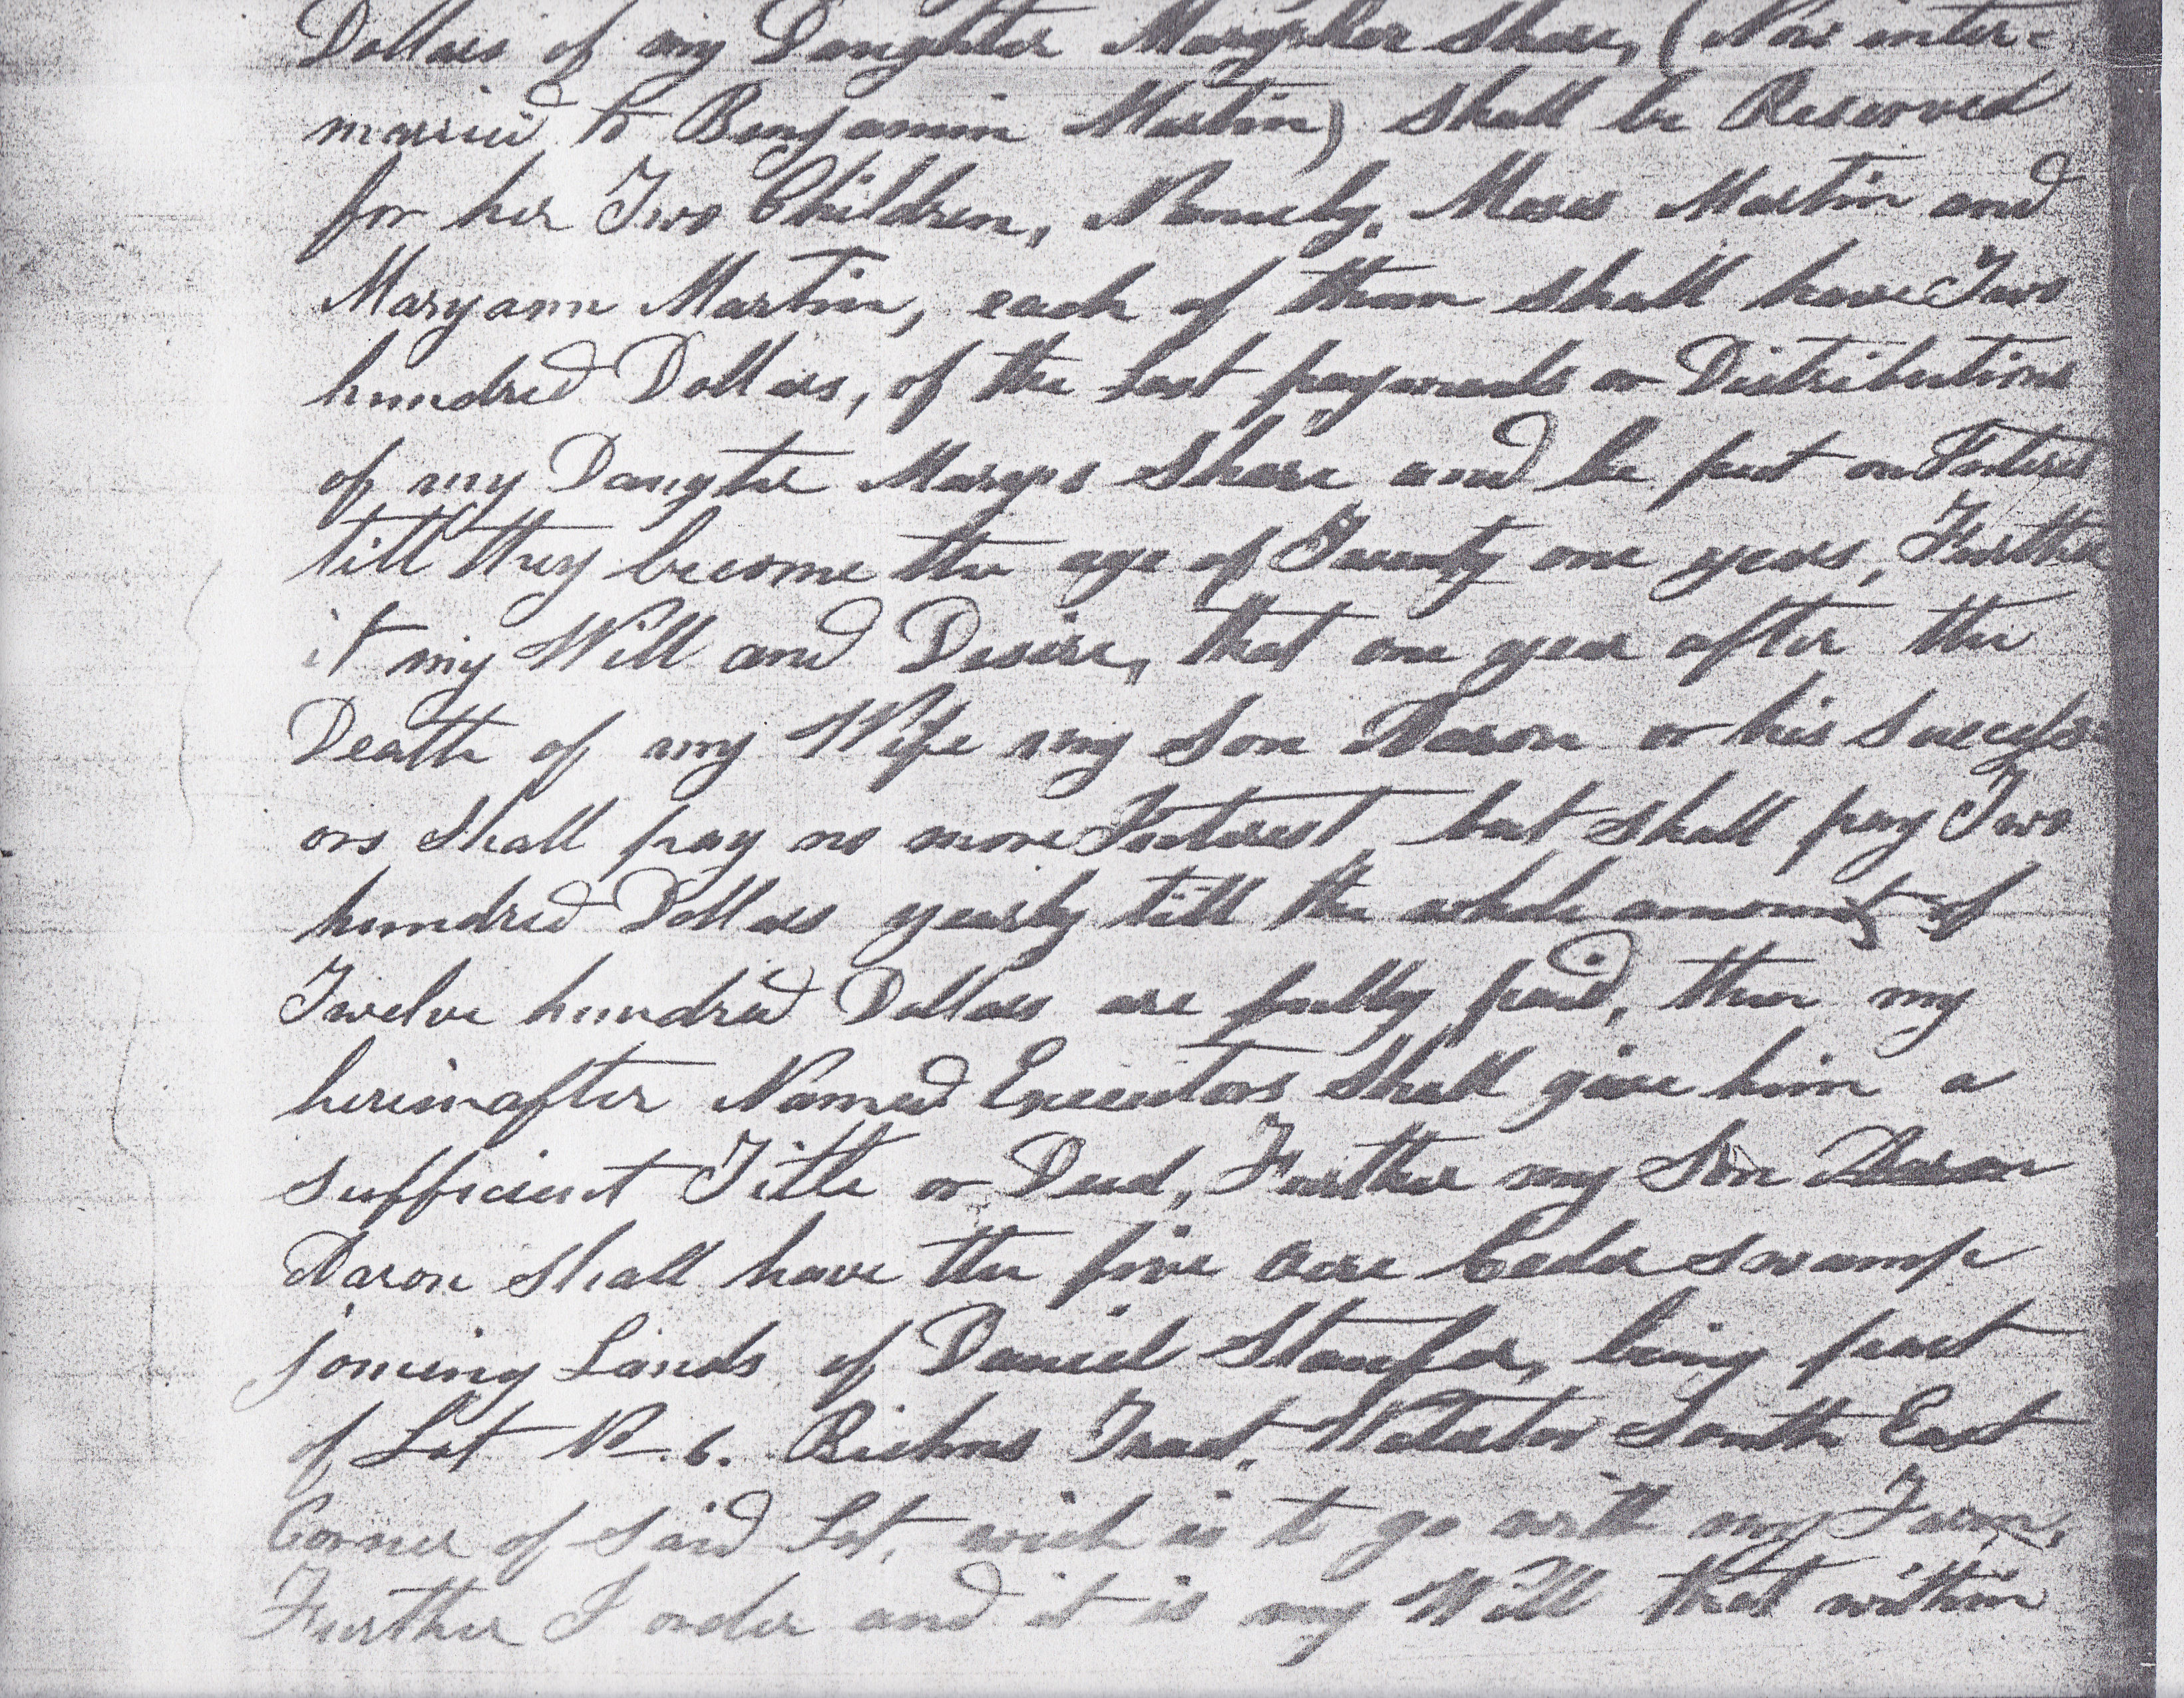 Dollars of my Daughter Mary her Share, (Now inter-
married to Benjamin Martin) shall be Reserved
for her Two Children, Namely, Moses Martin and
Maryann Martin, each of them shall have Two
hundred Dollars, of the last payments or Distributions
of my Daugter Marys Share and be put on Interest
till they become the age of Twenty one years, Further
it my Will and Desire, that one year after the
Death of my Wife my Son Aaron or his success
ors Shall pay no more Interest, but shall pay Two
hundred Dollars yearly till the whole amount of
Twelve hundred Dollars are fully paid, then my
hereinafter Named Executors Shall give him a
sufficient Title or Deed, Further my Son
Aaron Shall have the five Acre Ceder swamp
joining Lands of Daniel Staufer, being part
of Lot N. 6. Bichns Tract, Waterloo South East
Corner of Said Lot, wich is to go with my Farm,
Further I order and it is my Will that within